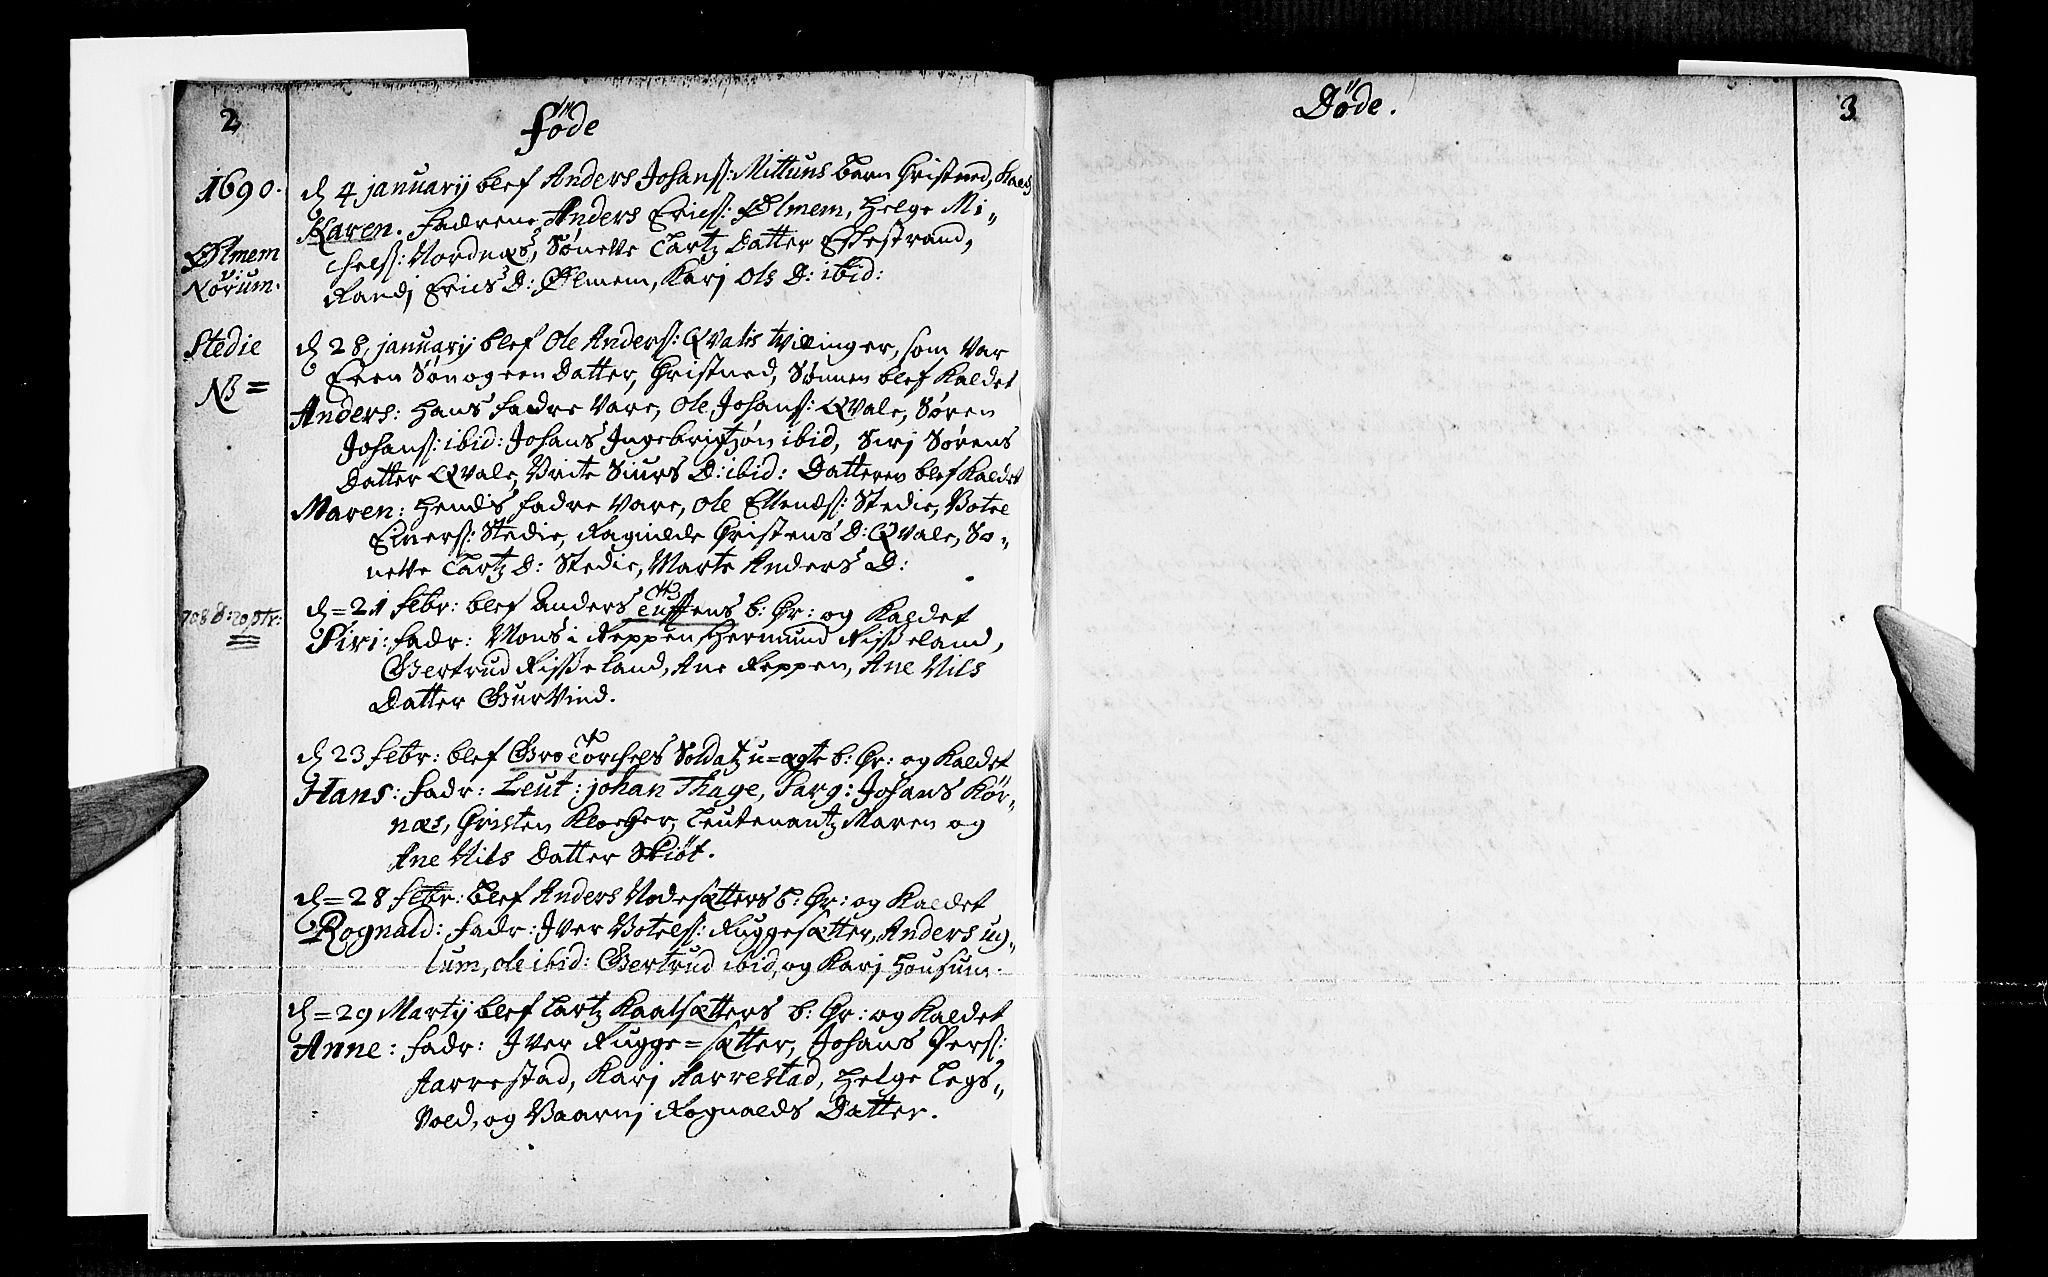 2
Föde
1690.
d 4 januarij blef Anders Johans: Mittuns barn Christned, Kald
Karen. Fadrene Anders Erics: Ølmem, Helge Mi„
chels: Nordnæs, Sønette Lartz Datter Eschestrand,
Ølmem
Randj Erics D: Ølmem, Karj Ols D: ibid:
Norum.
Stedie
d 28. januarij blef Ole Anders: Qvals tvillinger, som var
Een Søn og een Datter, Christned, Sønnen blef Kaldet
NB =
Anders: Hans fadre vare, Ole Johans: Qvale, Søren
Johans: ibid: Johans Ingebrigtzøn ibid, Sirj Sørens
Datter Qvale, Brite Siurs D: ibid: Datteren blef Kaldet
Maren: Hendis fadre vare, Ole Ellends: Stedie, Botel
Eivers: Stedie, Ragnilde Christens D: Qvale, Sø„
nette Lartz D: Stedie, Marte Anders D:
d = 21 Febr: blef Anders b: Chr: og Kaldet
Siri: Fadr: Mons i Reppen, Hermund Risseland,
Giertrud Risseland, Ane Reppen, Ane Nils
Datter Gurvind.
d 23 Febr: blef Gro Torchels Soldatz u=ægte b: Chr: og Kaldet
Hans: Fadr: Leut: johan Thage, Sarg: Johans Kør„
næs, Christen Klocher, Leutenantz Maren og
Ane Nils Datter Skiøt.
d = 28 Febr: blef Anders Nodesætters b: Chr: og Kaldet
Rognald: Fadr: Iver Botels: Ruggesætter, Anders ug„
lum, ole ibid: Giertrud ibid, og Karj Housum.
d = 29 Martij blef Lartz Kaalsætters b: Chr: og Kaldet
Anne: Fadr: Iver Rugge=sætter, Johans Pers:
Aarrestad, Karj Aarrestad, Helge Legs„
vold, og Baarnj Rognalds Datter.
Döde.
3